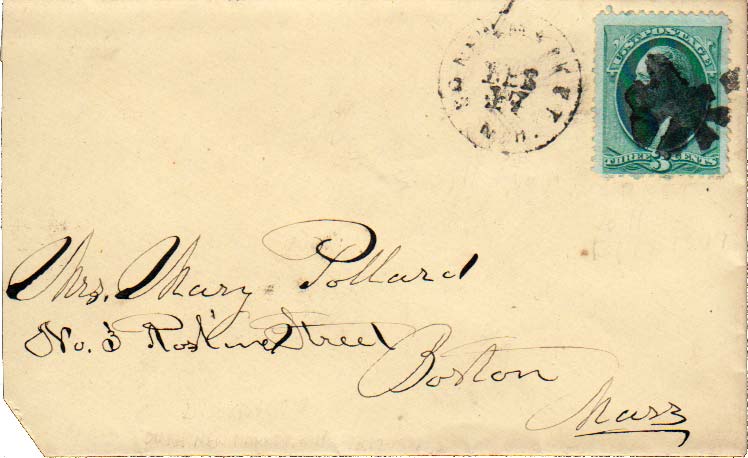 SO. NEWMARKET
FEB
17
N.H.
U.S. POSTAGE
THREE 3 CENTS
Mrs. Mary Pollard
No. 3 Street
Boston
Mass